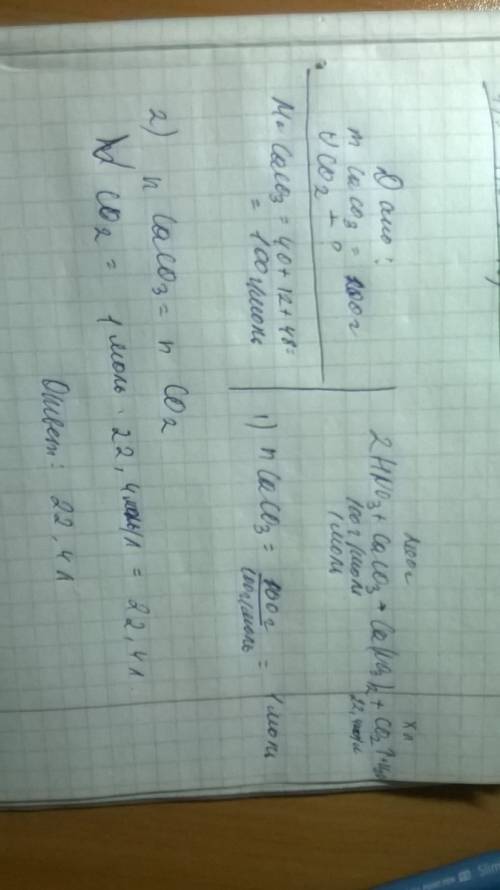 Дано:
m CaCO3 = 100г
V CO2 - ?
M CaCO3 = 40+12+48=
= 100г/моль
100г X л
2HNO3 + CaCO3 → Ca(NO3)2 + CO2↑ + H2O
100г/моль 22,4
1 моль
1) n CaCO3 = 100г / 100г/моль = 1 моль
2) n CaCO3 = n CO2
V CO2 = 1 моль · 22,4 моль/л = 22,4 л.
Ответ: 22,4 л
Slim